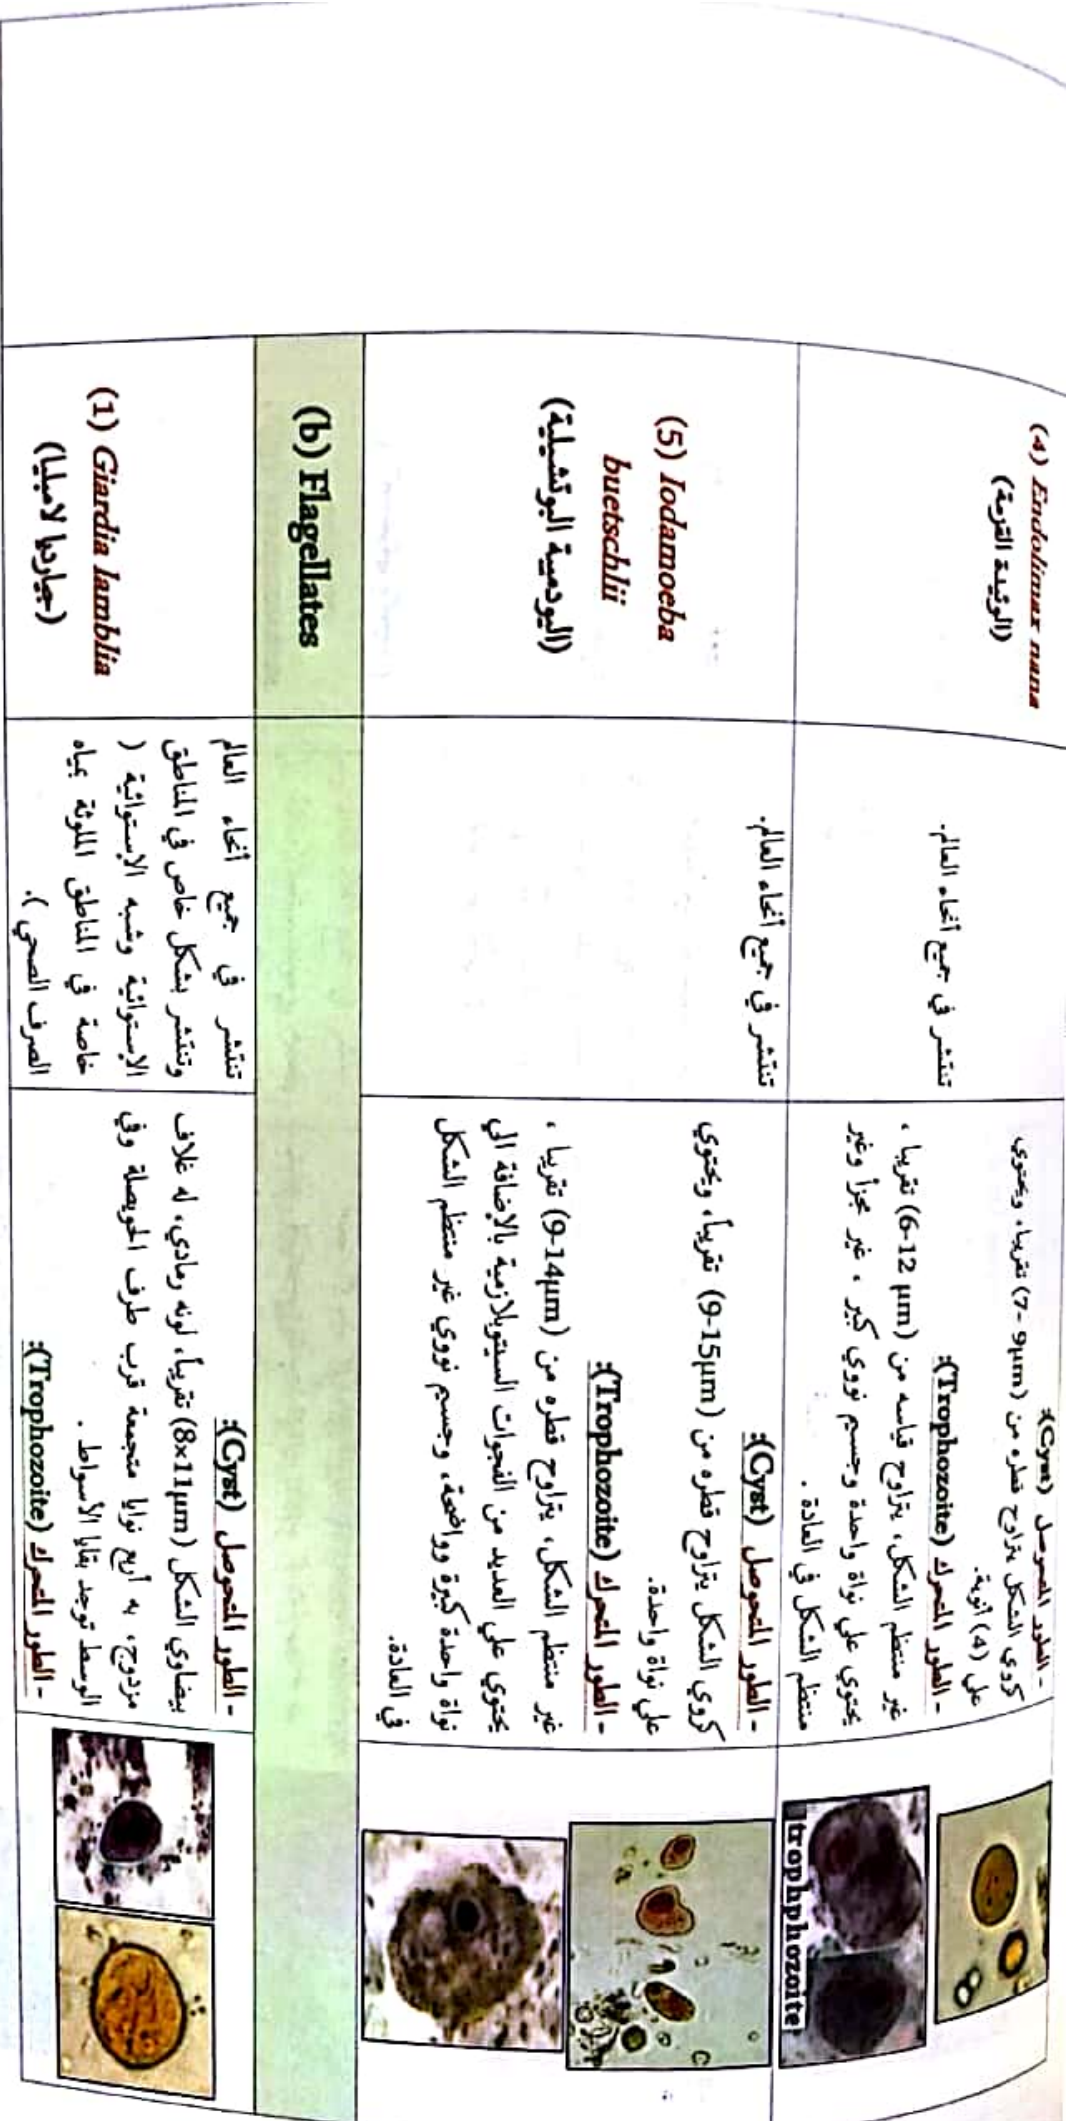 (4) Endolimax nana
(الوئيدة القزمة)
تنتشر في جميع أنحاء العالم.
- الطور المتحوصل (Cyst):
كروي الشكل يتراوح قطره من (7- 9µm) تقريبا، ويحتوي
على (4) أنوية.
- الطور المتحرك (Trophozoite):
غير منتظم الشكل، يتراوح قياسه من (6-12 µm) تقريبا ،
يحتوي علي نواة واحدة وجسيم نووي كبير ، غير مجزأ وغير
منتظم الشكل في العادة .
trophphozoite
(5) Iodamoeba
buetschlii
(اليودمبية البوتشيلية)
تنتشر في جميع أنحاء العالم.
- الطور المتحوصل (Cyst):
كروي الشكل يتراوح قطره من (9-15µm) تقريباً، ويحتوي
علي نواة واحدة.
- الطور المتحرك (Trophozoite):
غير منتظم الشكل، يتراوح قطره من (9-14µm) تقريبا ،
يحتوي علي العديد من الفجوات السيتوبلازمية بالإضافة الي
نواة واحدة كبيرة وواضحة، وجسيم نووي غير منتظم الشكل
في العادة.
(b) Flagellates
(1) Giardia lamblia
(جيارديا لامبليا)
تنتشر في جميع أنحاء العالم
وتنتشر بشكل خاص في المناطق
الإستوائية وشبه الإستوائية (
خاصة في المناطق الملوثة بمياه
الصرف الصحي ).
- الطور المتحوصل (Cyst):
بيضاوي الشكل (8x11µm) تقريباً، لونه رمادي، له غلاف
مزدوج، به أربع نوايا متجمعة قرب طرف الحويصلة وفي
الوسط توجد بقايا الأسواط .
- الطور المتحرك (Trophozoite):